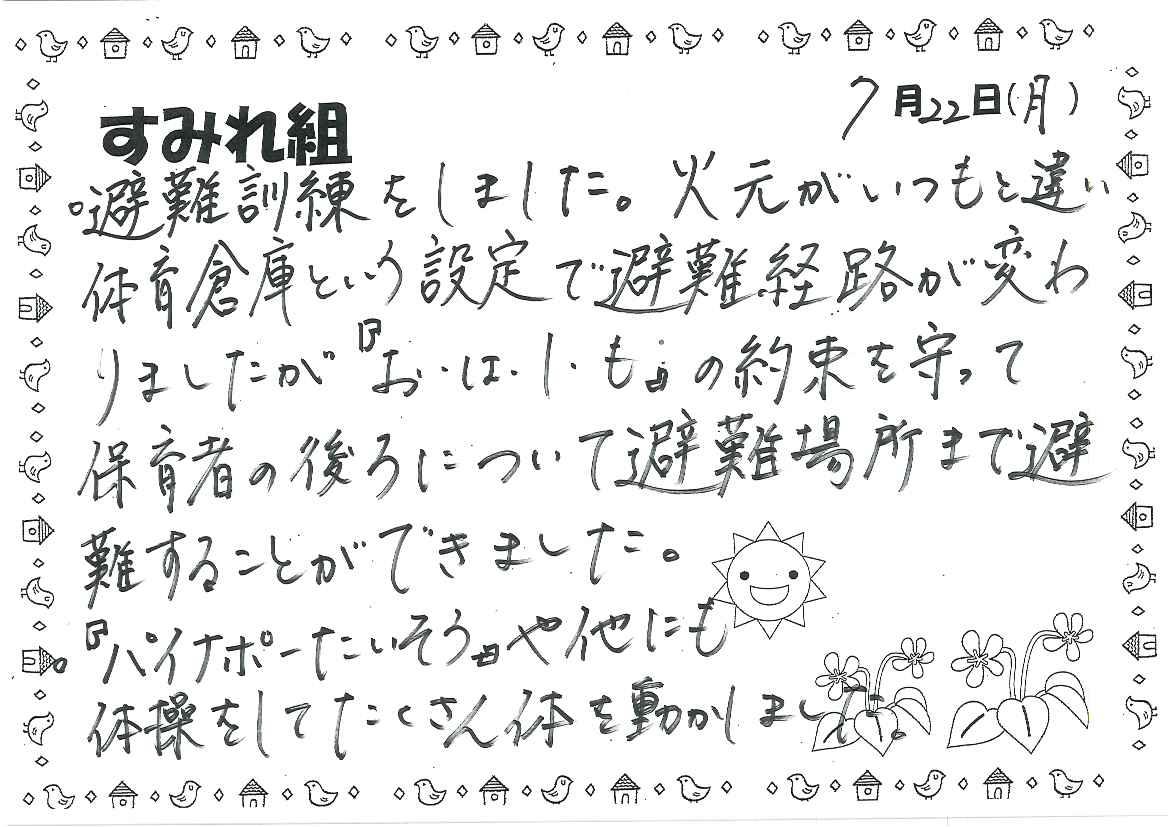 7月22日(月)
すみれ組
。避難訓練をしました。火元がいつもと違い
体育倉庫という設定で避難経路が変わ
りましたが『お・は・し・も』の約束を守って
保育者の後ろについて避難場所まで避
難することができました。
。『パイナポーたいそう』や他にも
体操をしてたくさん体を動かしました。